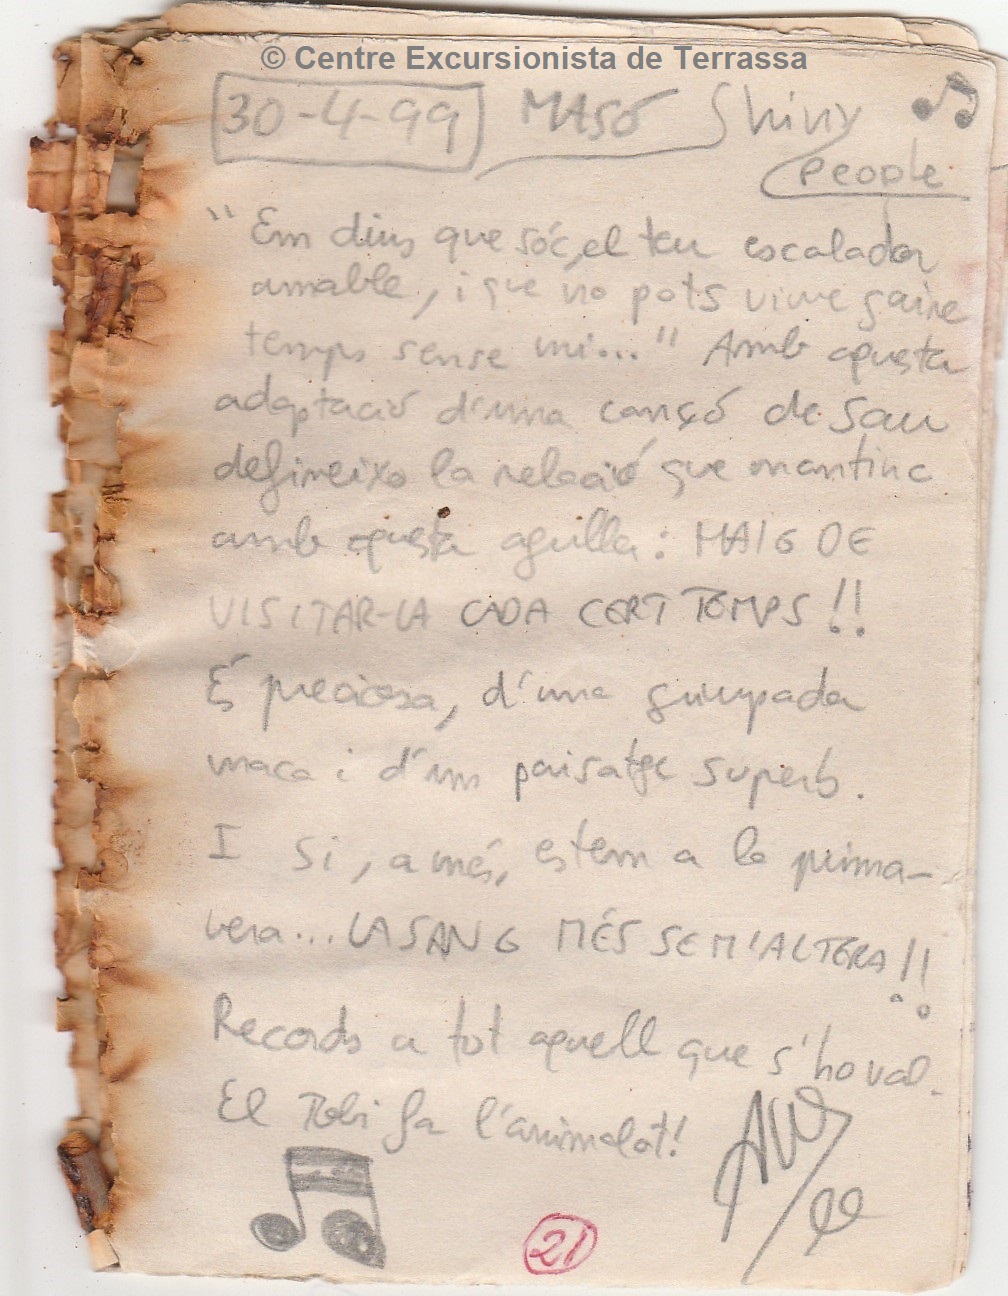 © Centre Excursionista de Terrassa
30-4-99 MASÓ Shiny
People
"Em dius que sóc, el teu escalador
amable, i que no pots viure gaire
temps sense mi..." Amb aquesta
adaptació d'una cançó de Sau
defineixo la relació que mantinc
amb aquesta agulla: HAIG DE
VISITAR-LA CADA CERT TEMPS!!
És preciosa, d'una grimpada
maca i d'un paisatge superb.
I si, a més, estem a la prima-
vera... LA SANG MÉS SE M'ALTERA!!
Records a tot aquell que s'ho val.
El Tobi fa l'animalot!
21